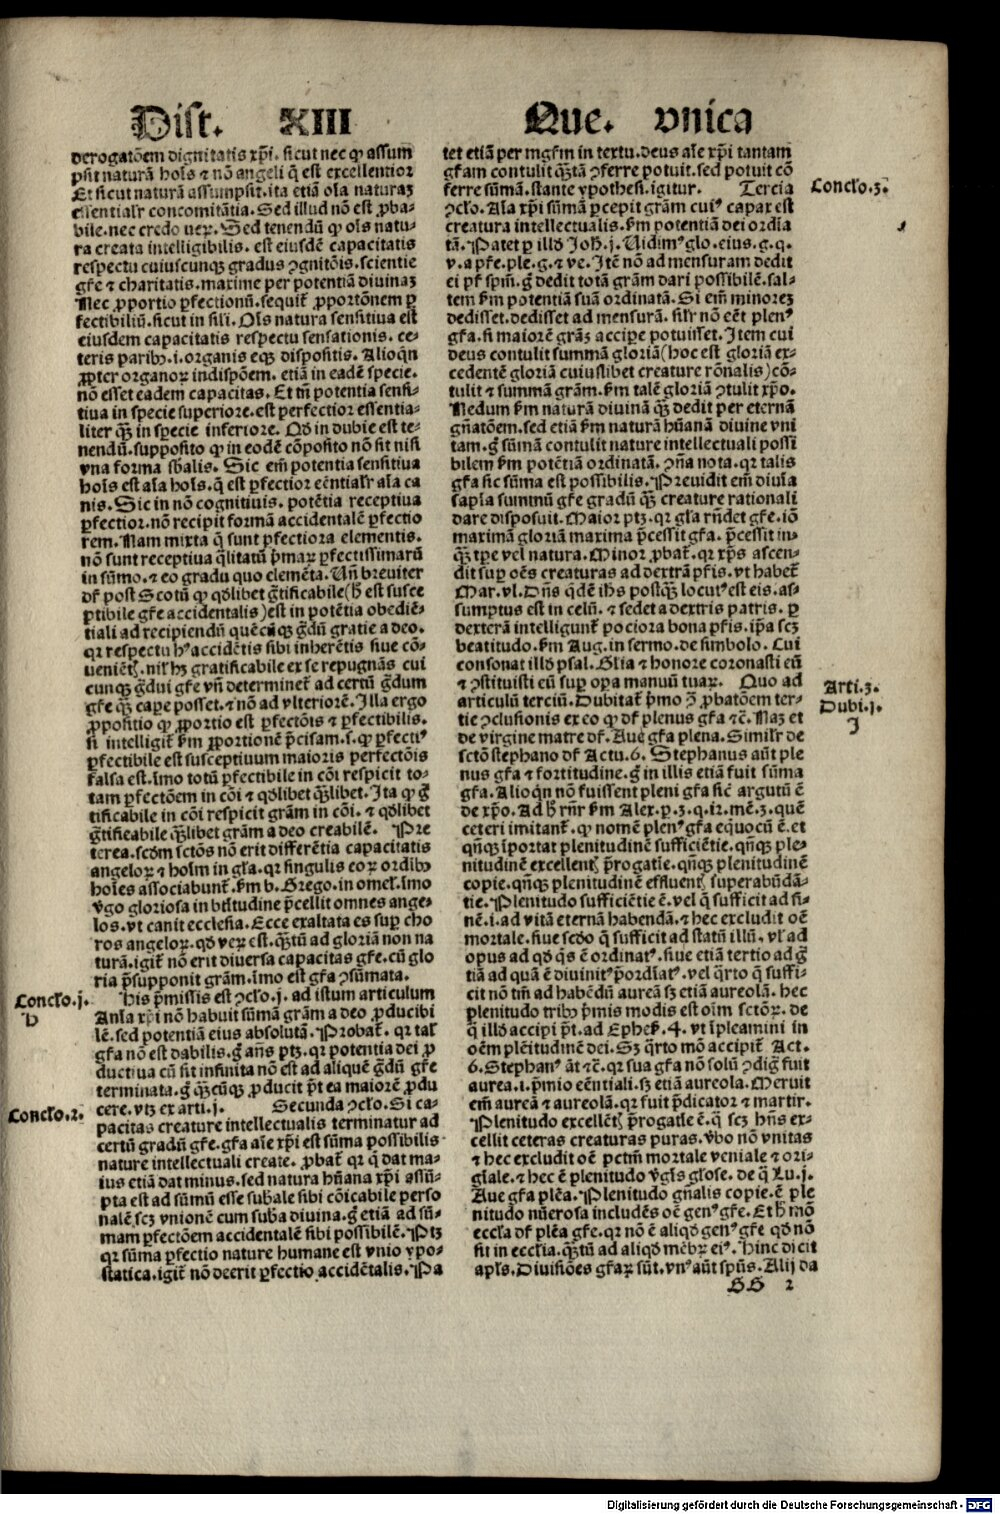 Dist. XIII Que. vnica
derogatõem dignitatis xp̃i. sicut nec ꝙ assum
psit naturã hoĩs ⁊ nõ angeli q̃ est excellentior
Et sicut naturã assumpsit. ita etiã oĩa naturaꝫ
essentialr̃ concomitãtia. Sed illud nõ est ꝓba-
bile. nec credo veꝝ. Sed tenendũ ꝙ oĩs natu-
ra creata intelligibilis. est eiusdẽ capacitatis
respectu cuiuscunqꝫ gradus ꝯgnitõis. scientie
gr̃e ⁊ charitatis. maxime per potentiã divinaꝫ
Nec ꝓportio ꝑfectionũ. sequit̃ ꝓportõnem ꝑ
fectibiliũ. sicut in sili. Oĩs natura sensitiua est
eiusdem capacitatis respectu sensationis. ce-
teris paribꝰ. i. organis eqꝫ dispositis. Alioqñ
ꝓpter organoꝝ indispõem. etiã in eadẽ specie.
nõ esset eadem capacitas. Et tñ potentia sensi-
tiua in specie superiore. est perfectior essentia-
liter qꝫ̃ in specie inferiore. Qď in dubie est te-
nendũ. supposito ꝙ in eodẽ cõposito nõ sit nisi
vna forma sb̃alis. Sic em̃ potentia sensitiua
hoĩs est aĩa hoĩs. q̃ est ꝑfectior eẽntialr̃ aĩa ca
nis. Sic in nõ cognitiuis. potẽtia receptiua
ꝑfectior. nõ recipit formã accidentalẽ ꝑfectio
rem. Nam mixta q̃ sunt ꝑfectiora elementis.
nõ sunt receptiua q̃litatũ ṗmaꝝ ꝑfectissimarũ
in sũmo. ⁊ eo gradu quo elemẽta. Vñ breuiter
dr̃ post Scotũ ꝙ qďlibet g̃tificabile (h̃ est susce
ptibile gr̃e accidentalis) est in potẽtia obediẽ-
tiali ad recipiendũ quẽcũqꝫ g̃dũ gratie a deo.
qr respectu hꝰ accidẽtis sibi inherẽtis siue cõ-
ueniẽtꝭ. nil hꝫ gratificabile ex se repugnãs cui
cunqꝫ g̃dui gr̃e vñ determinet̃ ad certũ g̃dum
gr̃e qꝫ̃ caꝑe posset. ⁊ nõ ad vlteriorẽ. Illa ergo
ꝓpositio ꝙ ꝓportio est ꝑfectõis ⁊ ꝑfectibilis.
si intelligit̃ ẜm ꝓportionẽ p̃cisam. s. ꝙ ꝑfectiꝰ
ꝑfectibile est susceptiuum maioris perfectõis
falsa est. Imo totũ ꝑfectibile in cõi respicit to-
tam ꝑfectõem in cõi ⁊ qďlibet qꝫ̃libet. Ita ꝙ g̃
tificabile in cõi respicit grãm in cõi. ⁊ qďlibet
g̃tificabile qꝫ̃libet grãm a deo creabilẽ. Pre
terea. scďm sctõs nõ erit differẽtia capacitatis
angeloꝝ ⁊ hoĩm in gl̃a. qr singulis eoꝝ ordibꝰ
hoĩes associabunt̃. ẜm b. Grego. in omel. Imo
v̊go gloriosa in bt̃itudine p̃cellit omnes ange-
los. vt canit ecclesia. Ecce exaltata es suꝑ cho
ros angeloꝝ. qď veꝝ est. qꝫ̃tũ ad gloriã non na
turã. igit̃ nõ erit diuersa capacitas gr̃e. cũ glo
ria p̃supponit grãm. Imo est gr̃a ꝯsũmata.
Conclo. j.
b
His p̃missis est ꝯcl̃o. j. ad istum articulum
Anĩa xp̃i nõ habuit sũmã grãm a deo ꝓducibi
lẽ. sed potentiã eius absolutã. Probat̃. qr tal̃
gr̃a nõ est dabilis. g̃ añs ptꝫ. qr potentia dei ꝓ
ductiua cũ sit infinita nõ est ad aliquẽ g̃dũ gr̃e
terminata. g̃ qꝫ̃cũqꝫ ꝓducit p̃t ea maiorẽ ꝓdu
cere. vtꝫ ex arti. j. Secunda ꝯcl̃o. Si ca-
Conclo. 2.
pacitas creature intellectualis terminatur ad
certũ gradũ gr̃e. gr̃a aĩe xp̃i est sũma possibilis
nature intellectuali create. ꝓbat̃ qr q̃ dat ma-
ius etiã dat minus. sed natura hũana xp̃i assũ-
pta est ad sũmũ esse sub̃ale sibi cõicabile perso
nalẽ. scꝫ vnionẽ cum sub̃a divina. g̃ etiã ad sũ-
mam ꝑfectõem accidentalẽ sibi possibilẽ. Ptꝫ
qr sũma ꝑfectio nature humane est vnio ypo-
statica. igit̃ nõ deerit ꝑfectio accidẽtalis. Pa
tet etiã per mgr̃m in textu. deus aĩe xp̃i tantam
gr̃am contulit qꝫ̃tã ꝯferre potuit. sed potuit cõ
ferre sũmã. stante ypothesi. igitur. Tercia
Conclo. 3.
ꝯcl̃o. Aĩa xp̃i sũmã ꝑcepit grãm cuiꝰ capax est
creatura intellectualis. ẜm potentiã dei ordĩa
tã. Patet ꝑ illď Joh̃. j. Uidimꝰ glo. eius. g. q.
v. a pr̃e. ple. g. ⁊ ve. Itẽ nõ ad mensuram dedit
ei pr̃ spm̃. g̃ dedit totã grãm dari possibilẽ. sal-
tem ẜm potentiã suã ordinatã. Si em̃ minoreꝫ
dedisset. dedisset ad mensurã. silr̃ nõ eẽt plenꝰ
gr̃a. si maiorẽ grãꝫ acciꝑe potuisset. Item cui
deus contulit summã gloriã (hoc est gloriã ex-
cedentẽ gloriã cuiuslibet creature rõnalis) cõ-
tulit ⁊ summã grãm. ẜm talẽ gloriã ꝯtulit xp̃o.
Nedum ẜm naturã divinã qꝫ̃ dedit per eternã
gñatõem. sed etiã ẜm naturã hũanã divine vni
tam. g̃ sũmã contulit nature intellectuali possi
bilem ẜm potẽtiã ordinatã. ꝯña nota. qr talis
gr̃a sic sũma est possibilis. Preuidit em̃ diuĩa
sapĩa summũ gr̃e gradũ qꝫ̃ creature rationali
dare disposuit. Maior ptꝫ. qr gl̃a rñdet gr̃e. iõ
maximã gloriã maxima p̃cessit gr̃a. p̃cessit in-
qꝫ̃ tp̃e vel natura. Minor ꝓbat̃. qr xp̃s ascen-
dit suꝑ oẽs creaturas ad dextrã pr̃is. vt habet̃
Mar. vl. Dñs qďẽ ihs postqꝫ̃ locutꝰ est eis. as-
sumptus est in celũ. ⁊ sedet a dextris patris. ꝑ
dexterã intelligunt̃ pociora bona pr̃is. ip̃a scꝫ
beatitudo. ẜm Aug. in sermo. de simbolo. Cui
consonat illď psal. Glia ⁊ honore coronasti eũ
⁊ ꝯstituisti eũ suꝑ oꝑa manuũ tuaꝝ. Quo ad
Arti. 3.
articulũ terciũ. Dubitat̃ ṗmo ꝯ̃ ꝓbatõem ter-
Dubi. j.
tie ꝯclusionis ex eo ꝙ dr̃ plenus gr̃a ⁊c̃. Naꝫ et
J
de virgine matre dr̃. Aue gr̃a plena. Similr̃ de
sctõ stephano dr̃ Actu. 6. Stephanus aũt ple
nus gr̃a ⁊ fortitudine. g̃ in illis etiã fuit sũma
gr̃a. Alioqñ nõ fuissent pleni gr̃a sicẽ argutũ ẽ
de xp̃o. Ad h̃ rñr̃ ẜm Alex. p. 3. q. 12. mẽ. 3. quẽ
ceteri imitant̃. ꝙ nomẽ plenꝰ gr̃a equocũ ẽ. et
qñqꝫ ĩportat plenitudinẽ sufficiẽtie. qñqꝫ ple-
nitudinẽ excellentꝭ p̃rogatie. qñqꝫ plenitudinẽ
copie. qñqꝫ plenitudinẽ effluentꝭ superabũdã-
tie. Plenitudo sufficiẽtie ẽ. vel q̃ sufficit ad fi-
nẽ. i. ad vitã eternã habendã. ⁊ hec excludit oẽ
mortale. siue scďo q̃ sufficit ad statũ illũ. vl̃ ad
opus ad qď q̃s ẽ ordinatꝰ. siue etiam tertio ad g̃
tiã ad quã ẽ diuinitꝰ p̃ordĩatꝰ. vel q̃rto q̃ suffi-
cit nõ tm̃ ad habẽdũ aureã sꝫ etiã aureolã. hec
plenitudo tribꝰ ṗmis modis est oĩm sctõꝝ. de
q̃ illď accipi p̃t. ad Epheẜ. 4. vt ĩpleamini in
oẽm plẽitudinẽ dei. Sꝫ q̃rto mõ accipit̃ Act.
6. Stephanꝰ ãt ⁊c̃. qr sua gr̃a nõ solũ ꝯdig̃ fuit
aurea. i. p̃mio eẽntiali. sꝫ etiã aureola. Meruit
em̃ aureã ⁊ aureolã. qr fuit p̃dicator ⁊ martir.
Plenitudo excellẽtꝭ p̃rogatie ẽ. q̃ scꝫ hñs ex-
cellit ceteras creaturas puras. v̊bo nõ vnitas
⁊ hec excludit oẽ pctm̃ mortale veniale ⁊ ori-
gĩale. ⁊ hec ẽ plenitudo v̊gĩs gl̃ose. de q̃ Lu. j.
Aue gr̃a plẽa. Plenitudo gñalis copie. ẽ ple
nitudo nũerosa includẽs oẽ genꝰ gr̃e. Et h̃ mõ
eccl̃a dr̃ plẽa gr̃e. qr nõ ẽ aliqď genꝰ gr̃e qď nõ
sit in eccl̃ia. qꝫ̃tũ ad aliqď mẽbꝝ eiꝰ. Hinc dicit
apl̃s. Diuisiões gr̃aꝝ sũt. vnꝰ aũt sp̃us. Alij da
GG 2
Digitalisierung gefördert durch die Deutsche Forschungsgemeinschaft - DFG